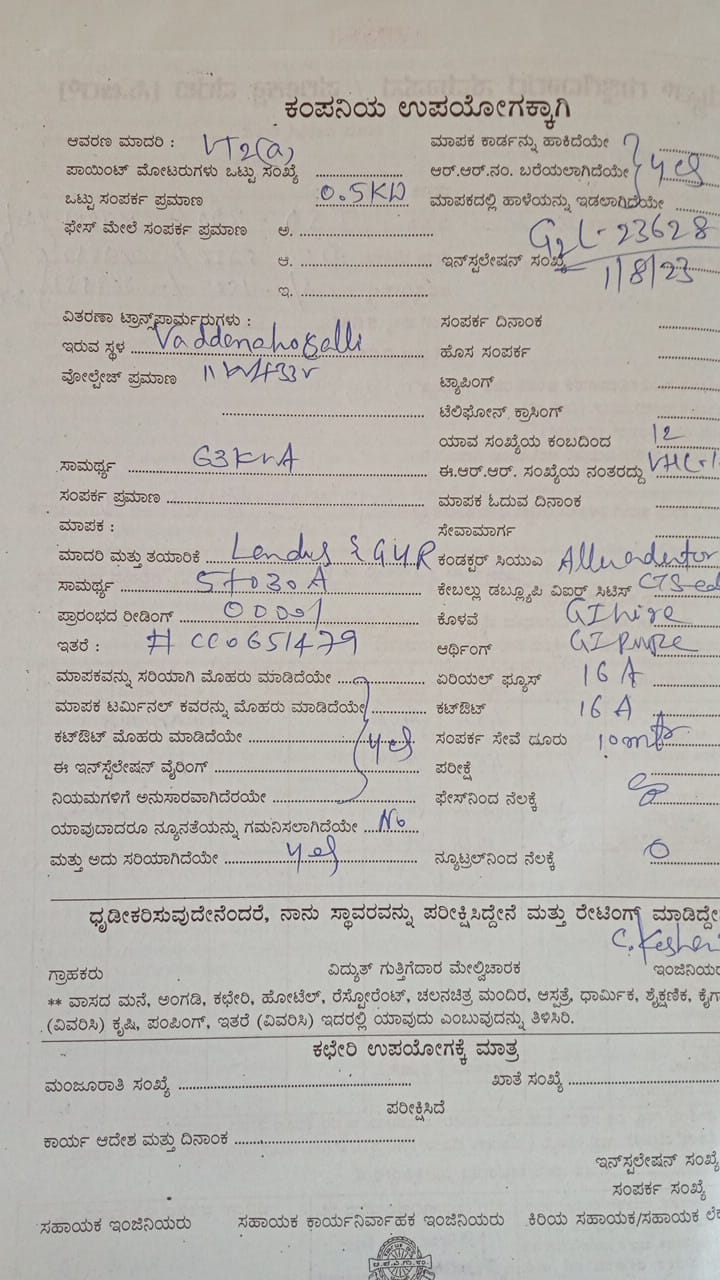 ಕಂಪನಿಯ ಉಪಯೋಗಕ್ಕಾಗಿ
ಆವರಣ ಮಾದರಿ : VT2(a) ಮಾಪಕ ಕಾರ್ಡನ್ನು ಹಾಕಿದೆಯೇ
ಪಾಯಿಂಟ್ ಮೋಟರುಗಳು ಒಟ್ಟು ಸಂಖ್ಯೆ ಆರ್.ಆರ್.ನಂ. ಬರೆಯಲಾಗಿದೆಯೇ yes
ಒಟ್ಟು ಸಂಪರ್ಕ ಪ್ರಮಾಣ 0.5KW ಮಾಪಕದಲ್ಲಿ ಹಾಳೆಯನ್ನು ಇಡಲಾಗಿದೆಯೇ
ಫೇಸ್ ಮೇಲೆ ಸಂಪರ್ಕ ಪ್ರಮಾಣ ಅ. G2L-23628
ಆ. ಇನ್‌ಸ್ಪಲೇಷನ್ ಸಂಖ್ಯೆ 1/8/23
ಇ.
ವಿತರಣಾ ಟ್ರಾನ್ಸ್‌ಫಾರ್ಮರುಗಳು : ಸಂಪರ್ಕ ದಿನಾಂಕ
ಇರುವ ಸ್ಥಳ Vaddenahosalli ಹೊಸ ಸಂಪರ್ಕ
ವೋಲ್ಟೇಜ್ ಪ್ರಮಾಣ ಟ್ಯಾಪಿಂಗ್
ಟೆಲಿಫೋನ್ ಕ್ರಾಸಿಂಗ್
ಯಾವ ಸಂಖ್ಯೆಯ ಕಂಬದಿಂದ 12
ಸಾಮರ್ಥ್ಯ 63KVA ಈ.ಆರ್.ಆರ್. ಸಂಖ್ಯೆಯ ನಂತರದ್ದು
ಸಂಪರ್ಕ ಪ್ರಮಾಣ ಮಾಪಕ ಓದುವ ದಿನಾಂಕ
ಮಾಪಕ : ಸೇವಾಮಾರ್ಗ
ಮಾದರಿ ಮತ್ತು ತಯಾರಿಕೆ Landis & GYR ಕಂಡಕ್ಟರ್ ಸಿಯುಎ
ಸಾಮರ್ಥ್ಯ 5to30A ಕೇಬಲ್ಲು ಡಬ್ಲ್ಯೂಪಿ ವಿಐರ್ ಸಿಟಿಸ್
ಪ್ರಾರಂಭದ ರೀಡಿಂಗ್ 00001 ಕೊಳವೆ GI wire
ಇತರೆ : # CC0651479 ಆರ್ಥಿಂಗ್ GI pipe
ಮಾಪಕವನ್ನು ಸರಿಯಾಗಿ ಮೊಹರು ಮಾಡಿದೆಯೇ ಏರಿಯಲ್ ಫ್ಯೂಸ್ 16 A
ಮಾಪಕ ಟರ್ಮಿನಲ್ ಕವರನ್ನು ಮೊಹರು ಮಾಡಿದೆಯೇ ಕಟ್‌ಔಟ್ 16 A
ಕಟ್‌ಔಟ್ ಮೊಹರು ಮಾಡಿದೆಯೇ yes ಸಂಪರ್ಕ ಸೇವೆ ದೂರು 10mtr
ಈ ಇನ್‌ಸ್ಟೆಲೇಷನ್ ವೈರಿಂಗ್ ಪರೀಕ್ಷೆ
ನಿಯಮಗಳಿಗೆ ಅನುಸಾರವಾಗಿದೆರಯೇ ಫೇಸ್‌ನಿಂದ ನೆಲಕ್ಕೆ
ಯಾವುಬಾದರೂ ನ್ಯೂನತೆಯನ್ನು ಗಮನಿಸಲಾಗಿದೆಯೇ No
ಮತ್ತು ಅದು ಸರಿಯಾಗಿದೆಯೇ yes ನ್ಯೂಟ್ರಲ್‌ನಿಂದ ನೆಲಕ್ಕೆ 0
ಧೃಡೀಕರಿಸುವುದೇನೆಂದರೆ, ನಾನು ಸ್ಥಾವರವನ್ನು ಪರೀಕ್ಷಿಸಿದ್ದೇನೆ ಮತ್ತು ರೇಟಿಂಗ್ ಮಾಡಿದ್ದೇ
ಗ್ರಾಹಕರು ವಿದ್ಯುತ್ ಗುತ್ತಿಗೆದಾರ ಮೇಲ್ವಿಚಾರಕ ಇಂಜಿನಿಯರ
** ವಾಸದ ಮನೆ, ಅಂಗಡಿ, ಕಛೇರಿ, ಹೋಟೆಲ್, ರೆಸ್ಟೋರೆಂಟ್, ಚಲನಚಿತ್ರ ಮಂದಿರ, ಆಸ್ಪತ್ರೆ, ಧಾರ್ಮಿಕ, ಶೈಕ್ಷಣಿಕ, ಕೈಗಾ
(ವಿವರಿಸಿ) ಕೃಷಿ, ಪಂಪಿಂಗ್, ಇತರೆ (ವಿವರಿಸಿ) ಇದರಲ್ಲಿ ಯಾವುದು ಎಂಬುವುದನ್ನು ತಿಳಿಸಿರಿ.
ಕಛೇರಿ ಉಪಯೋಗಕ್ಕೆ ಮಾತ್ರ
ಮಂಜೂರಾತಿ ಸಂಖ್ಯೆ ಖಾತೆ ಸಂಖ್ಯೆ
ಪರೀಕ್ಷಿಸಿದೆ
ಕಾರ್ಯ ಆದೇಶ ಮತ್ತು ದಿನಾಂಕ
ಇನ್‌ಸ್ಪಲೇಷನ್ ಸಂಖ್ಯೆ
ಸಂಪರ್ಕ ಸಂಖ್ಯೆ
ಸಹಾಯಕ ಇಂಜಿನಿಯರು ಸಹಾಯಕ ಕಾರ್ಯನಿರ್ವಾಹಕ ಇಂಜಿನಿಯರು ಕಿರಿಯ ಸಹಾಯಕ/ಸಹಾಯಕ ಲೆ